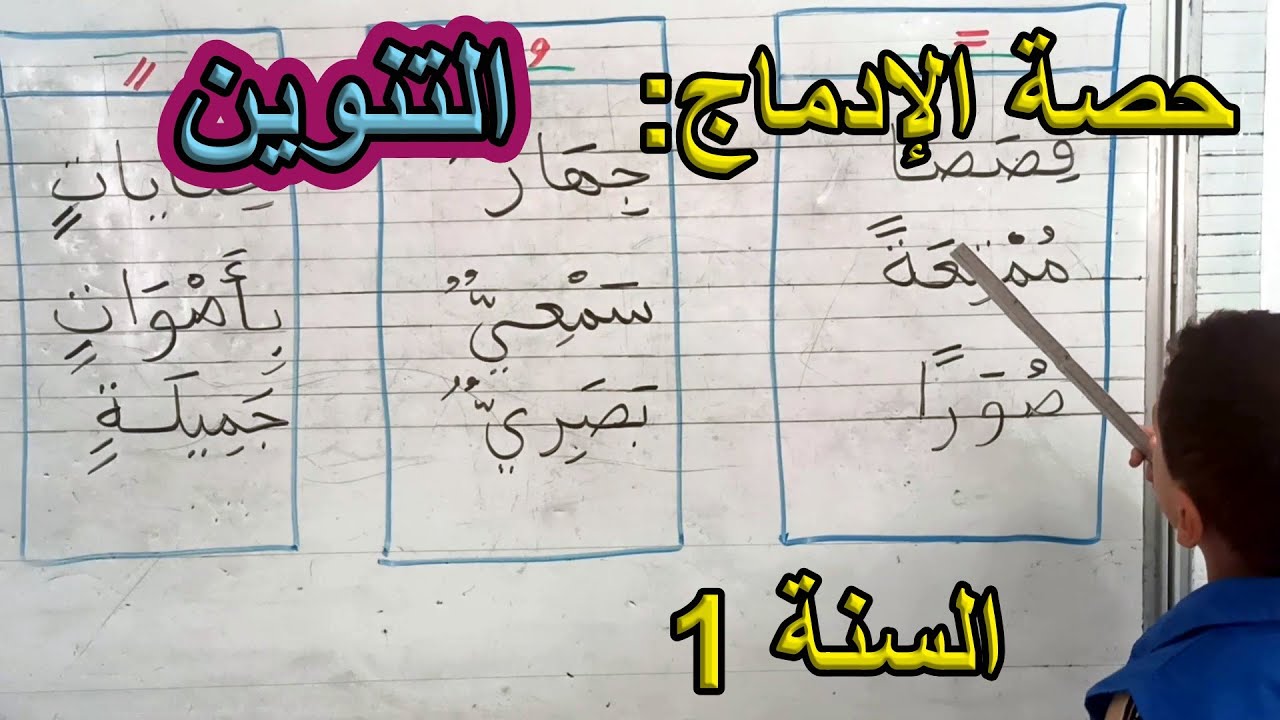 حصة الإدماج: التنوين
قِصَصًا
مُمْتِعَةً
صُوَرًا
جِهَازٌ
سَمْعِيٌّ
بَصَرِيٌّ
بِأَصْوَاتٍ
جَمِيلَةٍ
السنة 1